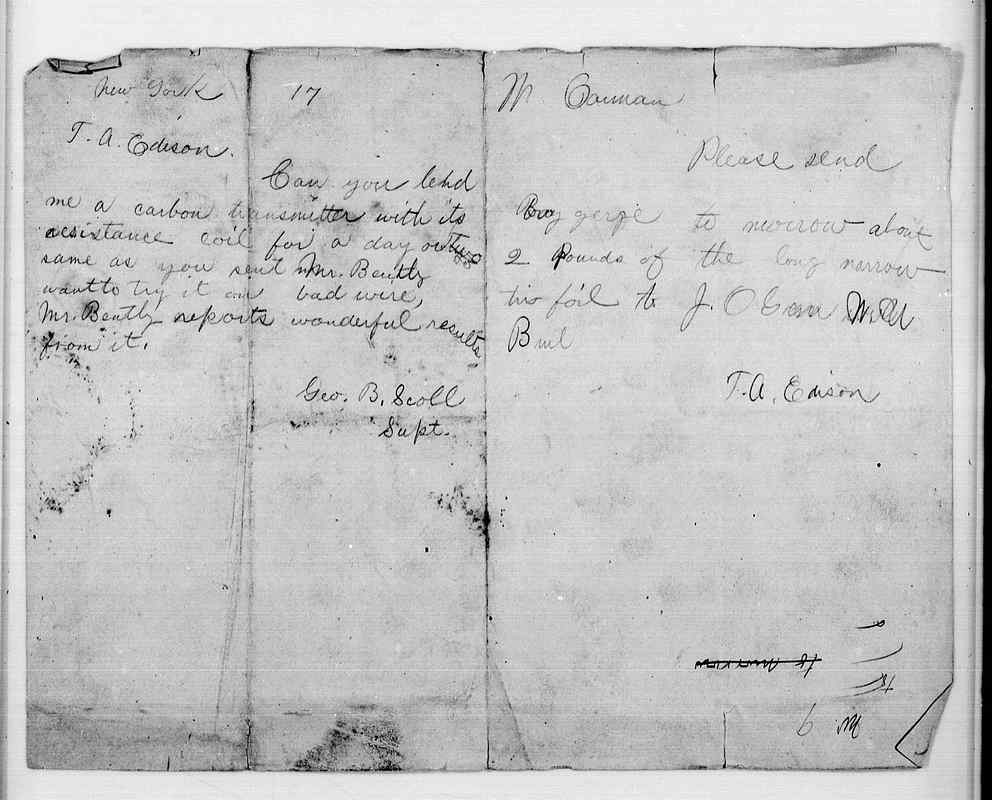 New York 17
T. A. Edison.
Can you lend
me a carbon transmitter with its
resistance coil for a day or two
same as you sent Mr. Bently
want to try it on bad wire,
Mr. Bently reports wonderful results
from it.
Geo. B. Scott
Supt.
M Carman
Please send
to morrow about
2 Pounds of the long narrow
tin foil to J. O
T. A. Edison